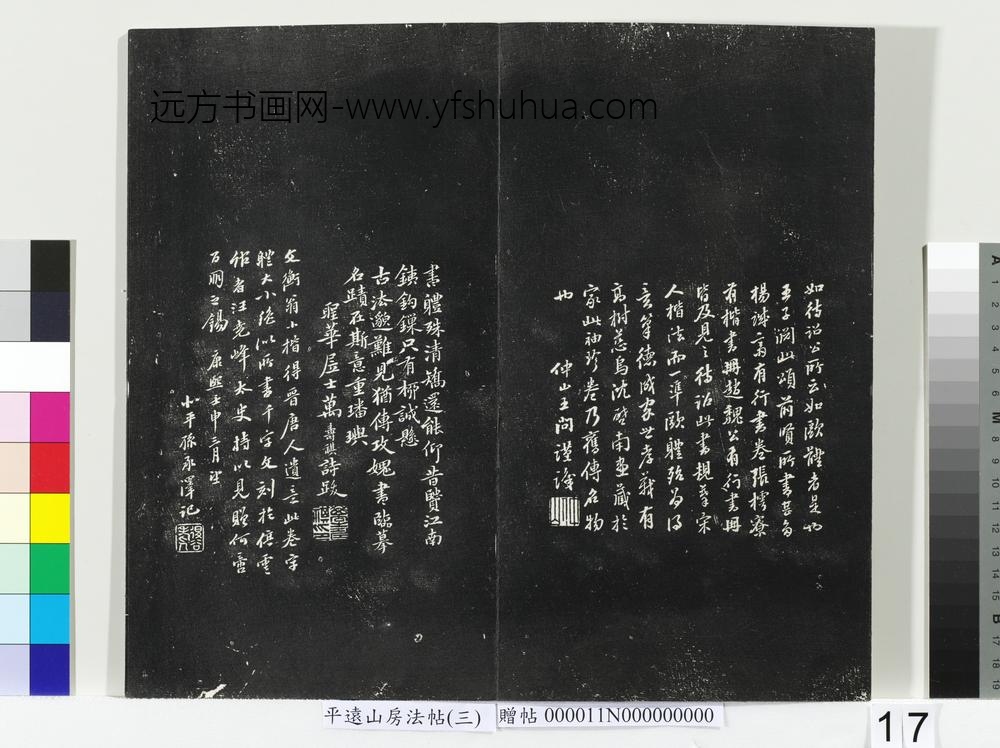 远方书画网-www.yfshuhua.com
如待詔公所云如歐體者是也
王子淵此頌前賢所書甚多
楊誠一翁有行書卷張樗寮
有楷書冊趙魏公有行書冊
皆及見之待詔此書規摹宋
人楷法而一準歐體殆為得
意筆德成家世孝義有
高樹慈烏沈啓南畫藏於
家此袖珍卷乃舊傳名物
也 仲山王問謹識
書體殊清矯還能仰昔賢江南
鐵鉤鏁只有柳誠懸
古法邈難見猶傳攻媿書臨摹
名蹟在斯意重璠璵
聖華居士萬壽祺詩跋
文衡翁小楷得晉唐人遺意此卷字
體大小絕似所書千字文刻於俱
者汪堯峰太史持以見贈何啻
百朋之錫 康熙壬申三月望
北平孫承澤記
平遠山房法帖(三) 贈帖 000011N000000000
17